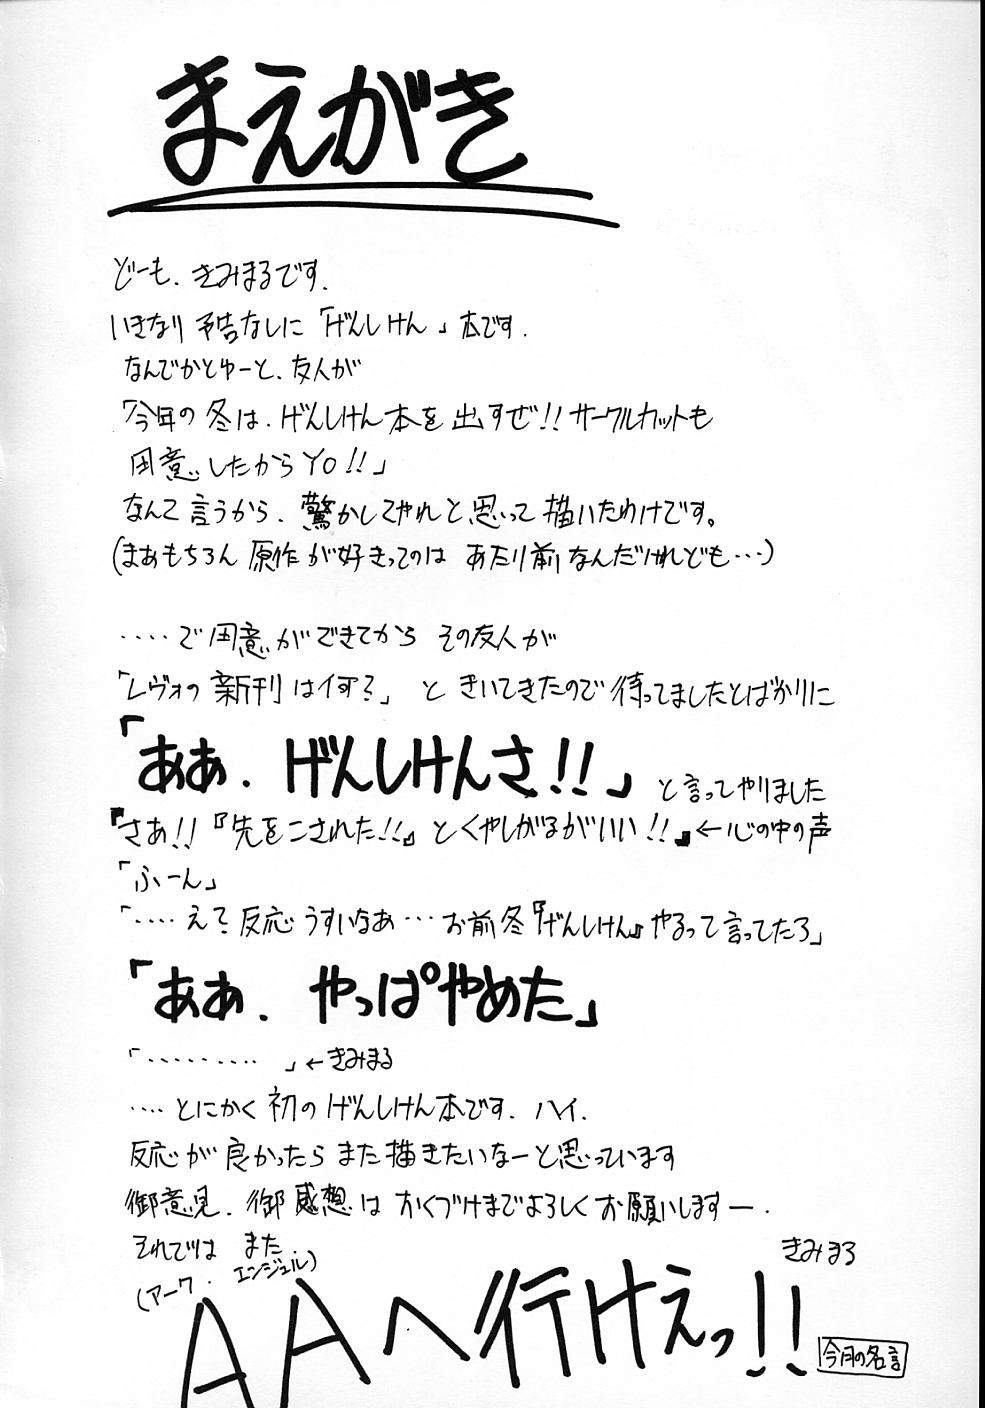 まえがき
どーも、きみまるです.
いきなり予告なしに「げんしけん」本です.
なんでかとゆーと、友人が
「今年の冬は、げんしけん本を出すぜ!!サークルカットも
用意したからYO!!」
なんて言うから、驚かしてやれと思って描いたわけです。
(まあもちろん原作が好きってのはあたり前なんだけれども…)
‥‥で用意ができてからその友人が
「レヴォの新刊は何?」ときいてきたので待ってましたとばかりに
「ああ、げんしけんさ!!」と言ってやりました
『さあ!!『先をこされた!!』とくやしがるがいい!!』←心の中の声
「ふーん」
「‥‥えて反応うすいなあ…お前冬『げんしけん』やるって言ってたろ」
「ああ、やっぱやめた」
「‥‥‥‥‥」←きみまる
‥‥とにかく初のげんしけん本です.ハイ.
反応が良かったらまた描きたいなーと思っています
御意見、御感想はおくづけまでよろしくお願いしますー.
それではまた
きみまる
(アーク・エンジェル)
AAへ行けえっ!!
今月の名言